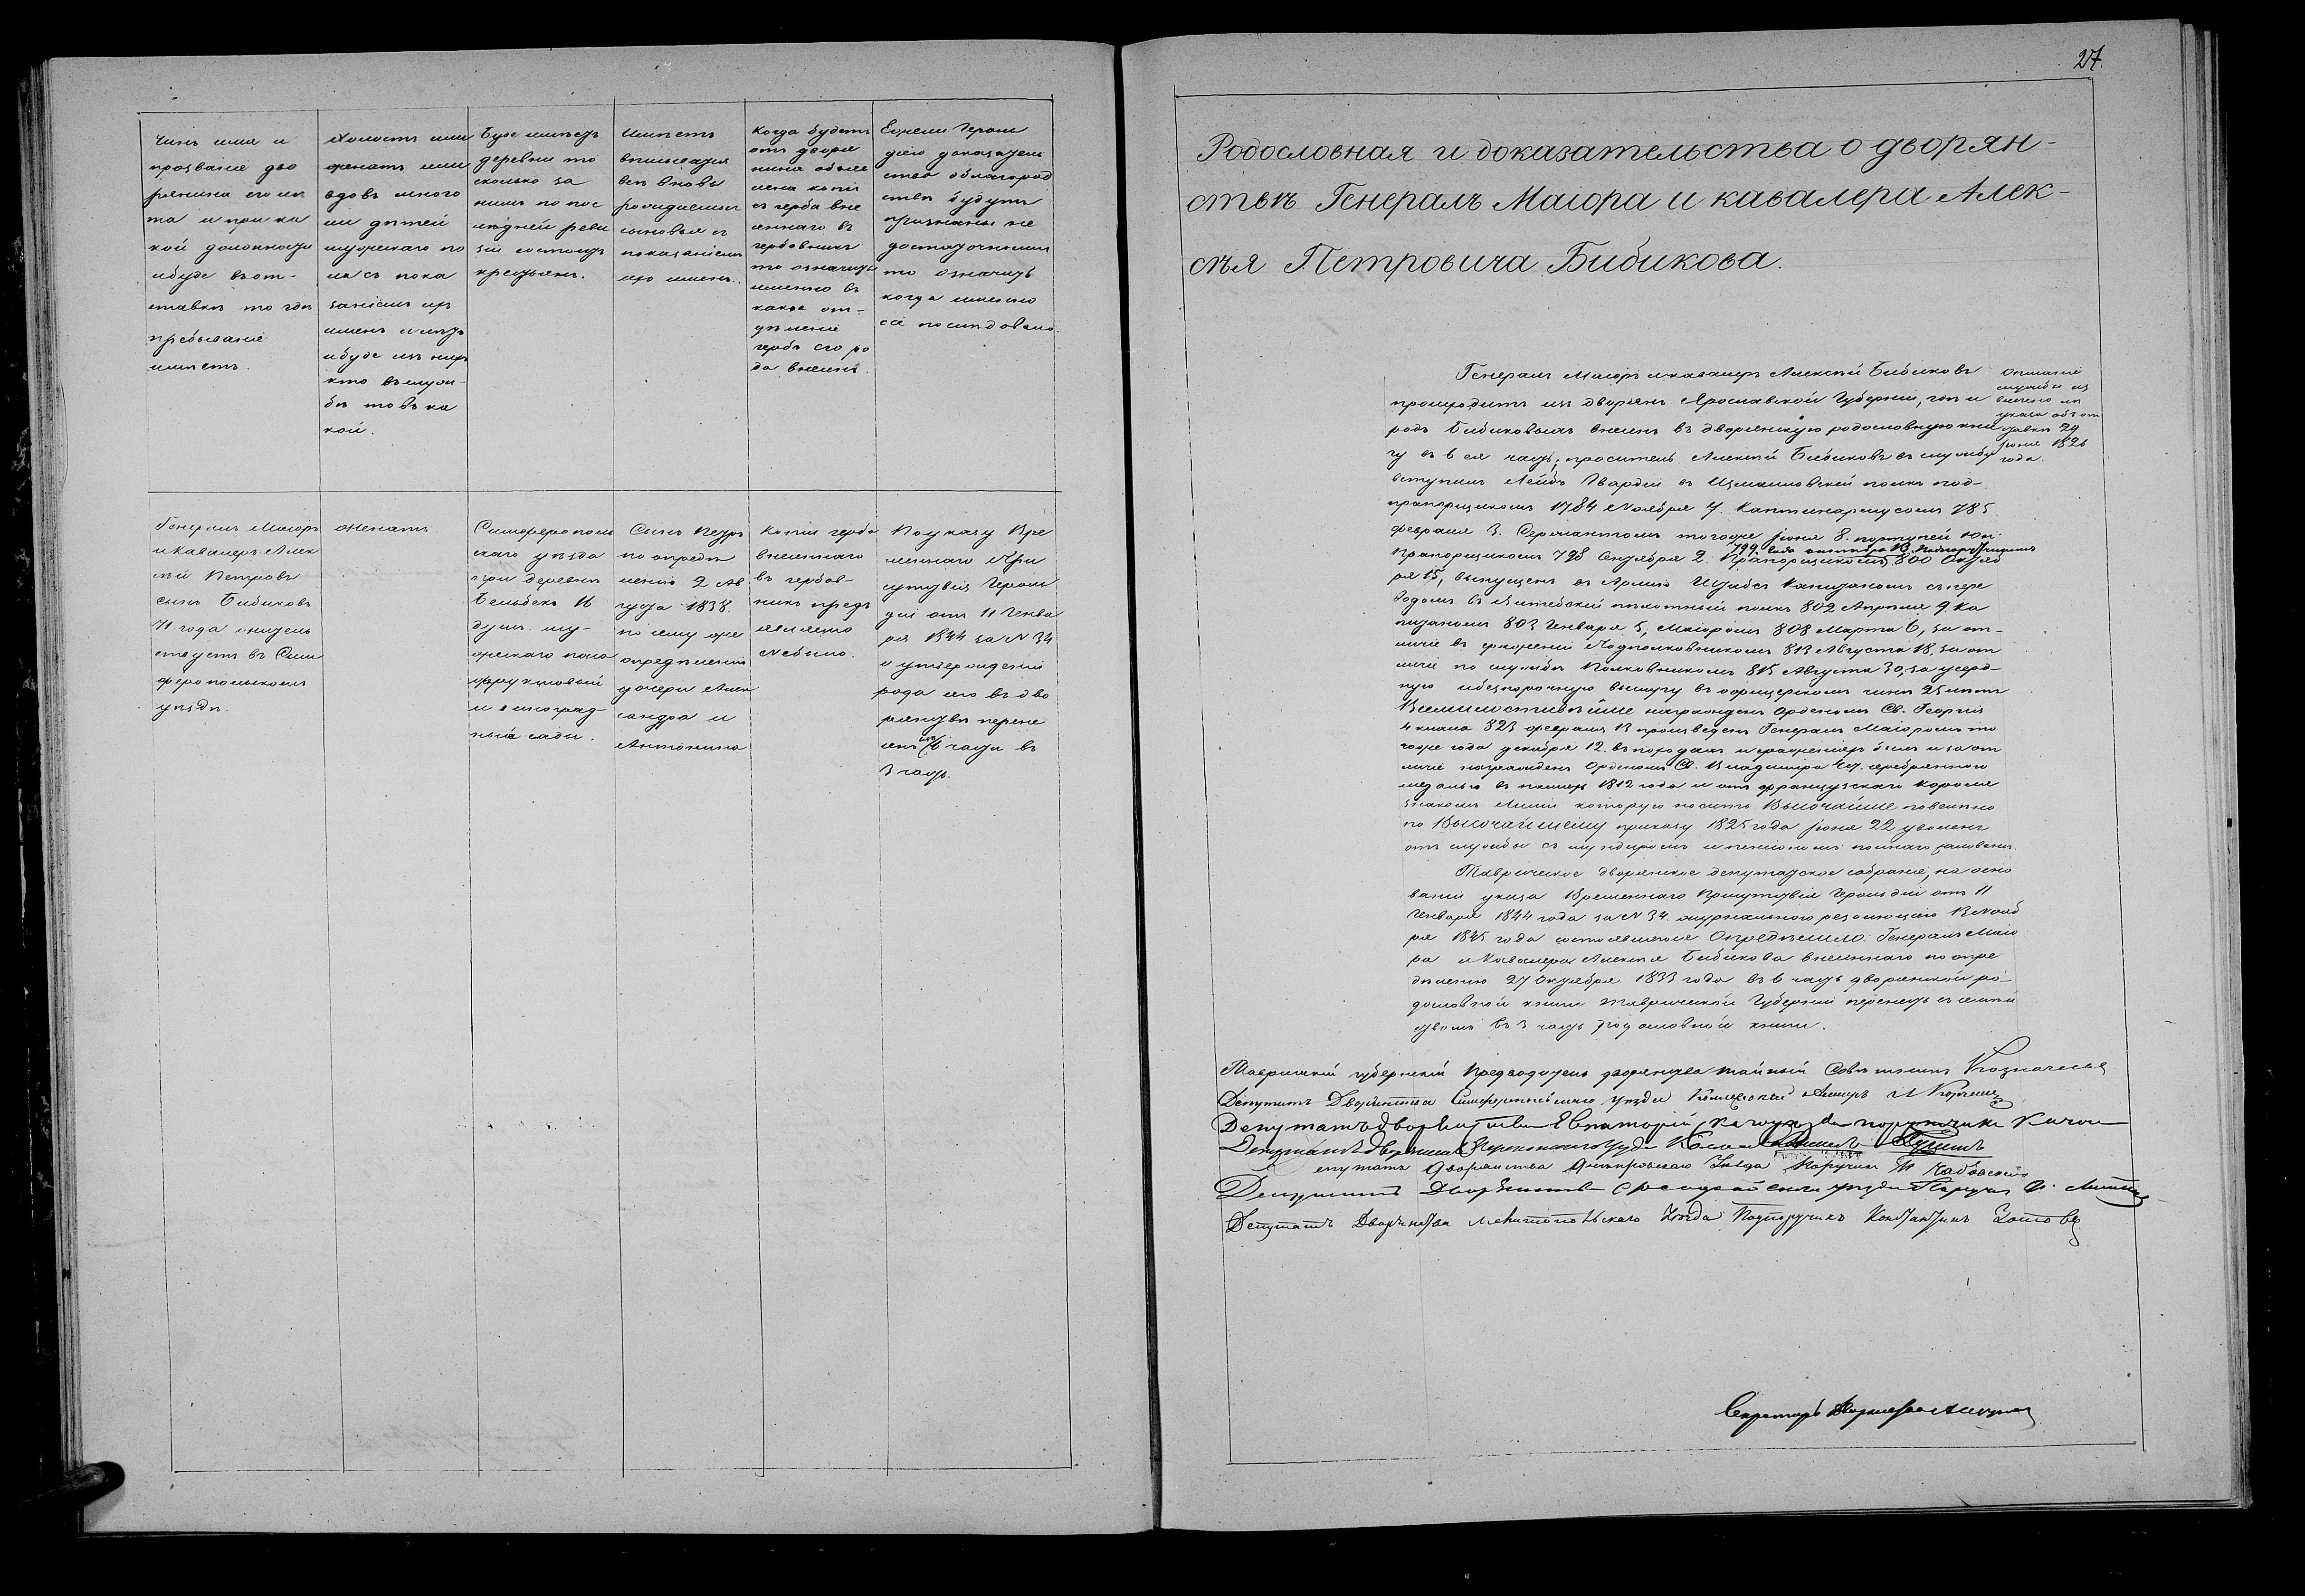 Чинъ имя и
прозваніе дво
рянина его ли
та и при ка
кой должности
и буде въ от-
ставкѣ то гдѣ
пребываніе
имѣетъ.
Холостъ или
женатъ или
вдовъ много
ли дѣтей
мужескаго по
ла съ пока
заніемъ ихъ
именъ и лѣтъ
и буде изъ нихъ
кто въ служ-
бѣ то въ ка
кой.
Буде имѣетъ
деревни то
сколько за
нимъ по пос
лѣдней реви
зіи состоитъ
крестьянъ.
Имѣетъ
вписывать
всѣ вновь
рождаемыя
сыновья съ
показаніемъ
ихъ именъ.
Когда будетъ
отъ дворя
нина объяв
лена копія
съ герба вне
сеннаго въ
гербовникъ
то означить
именно въ
какое от-
дѣленіе
гербъ его ро
да внесенъ.
Ежели Героль
діею доказатель
ства о благород
ствѣ будутъ
признаны не
достаточными
то означить
когда именно
сіе послѣдовало.
Генералъ Маіоръ
и Кавалеръ Алек
сѣй Петровъ
сынъ Бибиковъ
71 года житель
ствуетъ въ Сим
феропольскомъ
уѣздѣ.
Женатъ
Симферополь
скаго уѣзда
при деревнѣ
Бельбекъ 16
душъ му-
жескаго пола
фруктовый
и виноград-
ный сады.
Сынъ Петръ
по опредѣ
ленію 2 Ав
густа 1838.
по сему же
опредѣленію
дочери Алек
сандра и
Антонина
Копіи герба
внесеннаго
въ гербов-
никъ предъ
явлено
не было.
По указу Вре
меннаго При
сутствія Героль
діи отъ 11 Генва
ря 1844 за № 34
о утвержденіи
рода его въ дво
рянствѣ перене
сенъ изъ 6 части въ
3 часть.
27.
Родословная и доказательства о дворян-
ствѣ Генералъ Маіора и кавалера Алек-
сѣя Петровича Бибикова.
Генералъ Маіоръ и кавалеръ Алексѣй Бибиковъ
происходитъ изъ дворянъ Ярославской Губерніи, гдѣ и
родъ Бибиковыхъ внесенъ въ дворянскую родословную кни
гу въ 6 ея часть; проситель Алексѣй Бибиковъ въ службу
вступилъ Лейбъ Гвардіи въ Измайловскій полкъ под-
прапорщикомъ 1784 Ноября 7. Каптинармусомъ 785
февраля 3. Сержантомъ того же іюня 8. портупей юн.
799. года октября 13. Подпоручикомъ
Прапорщикомъ 798 Октября 2. Прапорщикомъ, 800 Октяб
ря 15, выпущенъ въ Армію Штабсъ Капитаномъ съ пере
водомъ въ Витебскій пѣхотный полкъ 802 Апрѣля 9. Ка
питаномъ 803 Генваря 5, Маіоромъ 808 Марта 6, за от-
личіе въ сраженіи Подполковникомъ 813 Августа 18. за от
личіе по службѣ Полковникомъ 815 Августа 30, за усерд-
ную и безпорочную выслугу въ офицерскомъ чинѣ 25 лѣтъ
Всемилостивѣйше награжденъ Орденомъ Св. Георгія
4 класа 823 февраля 13 произведенъ Генералъ Маіоромъ то
гоже года декабря 12. въ походахъ и сраженіяхъ былъ и за от
личіе награжденъ Орденомъ Св. Владиміра 4 ст. серебрянною
медалью въ память 1812 года и отъ французскаго Короля
знакомъ Лиліи которую носить Высочайше повелѣно
по Высочайшему приказу 1825 года іюня 22 уволенъ
отъ службы съ мундиромъ и пенсіономъ полнаго жалованья.
Описаніе
службы из
влечено из
указа объ от
ставкѣ 29
іюня 1826
года.
Таврическое дворянское депутатское собраніе, на осно
ваніи указа Временнаго Присутствія Герольдіи отъ 11
Генваря 1844 года за № 34. журнальною резолюціею 13 Нояб
ря 1845 года состоявшеюся Опредѣлило: Генералъ Маіо
ра и Кавалера Алексѣя Бибикова внесеннаго по опре
дѣленію 27 Октября 1833 года въ 6 часть дворянской ро-
дословной книги Таврической Губерніи перенесть съ семей
ствомъ въ 3 часть родословной книги.
Таврическій губернскій Предводитель дворянства тайный Совѣтникъ Казначеевъ
Депутатъ Дворянства Симферопольскаго уѣзда
Депутатъ дворянства Евпаторійскаго уѣзда поручикъ Качои
Депутатъ дворянства
Депутатъ Дворянства Днѣпровскаго Уѣзда Поручикъ
Депутатъ Дворянства Ѳеодосійскаго уѣзда
Депутатъ Дворянства Мелитопольскаго Уѣзда Подпоручикъ Константинъ Зотовъ
Секретарь Дворянства